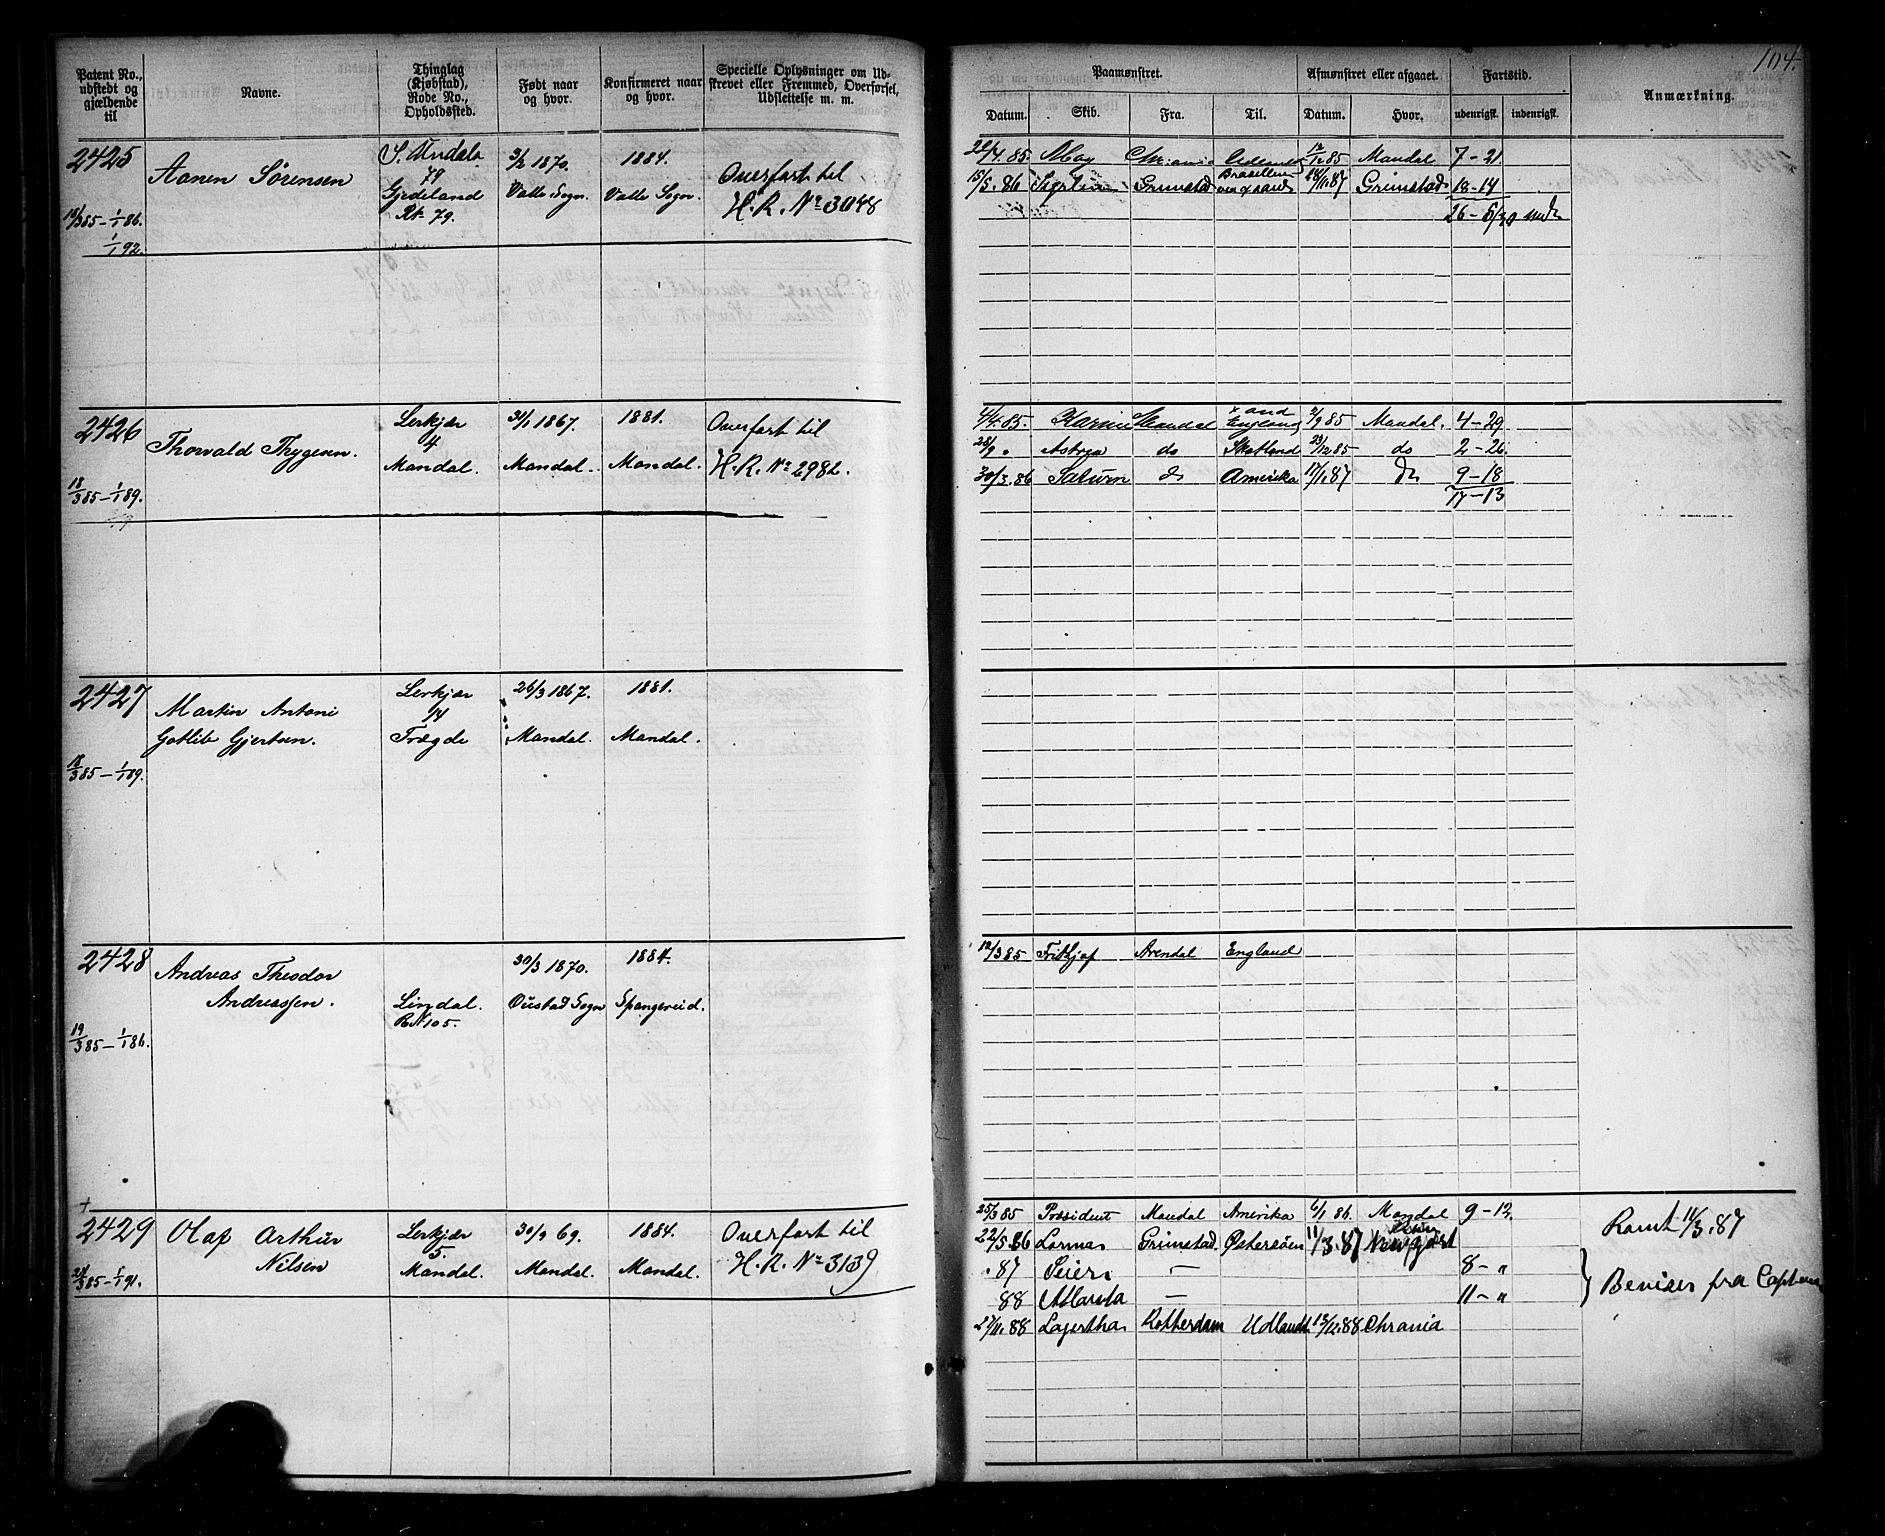 104.
Patent No., udstedt og gjældende til
Navne.
Thinglag (Kjøbstad), Rode No., Opholdssted.
Født naar og hvor.
Konfirmeret naar og hvor.
Specielle Oplysninger om Udskrevet eller Fremmed, Overførsel, Udslettelse m. m.
Paamønstret.
Afmønstret eller afgaaet.
Fartstid.
Anmærkning.
Datum. Skib. Fra. Til. Datum. Hvor. udenrigsk. indenrigsk.
2425
Aanen Sørensen
S. Undals
79
Gjedeland
Rt. 79.
3/2 1870.
Valle Sogn.
1884.
Valle Sogn.
Overført til
H.R. No 3048
18/3 85 – 1/1 86.
1/1 92.
/4. 85. Chr:ania 12/12 85 Mandal 7 – 21
15/5. 86 Grimstad Brasilien 1. 87 Grimstad 18 – 14
26 – 5/30
2426
Thorvald Thygesen.
Lerkjær
4
Mandal.
31/1 1867.
Mandal.
1881.
Mandal.
Overført til
H.R. No 2982.
18/3 85 – 1/1 89.
4/4. 85. Karin Mandal England 2/9 85 Mandal. 4 – 29
28/9 " Astrea do Skotland 23/12 85 do 2 – 26
30/3. 86 Saturn do Amerika 17/1. 87 do 9 – 18
17 – 13
2427
Martin Antoni
Gotlib Gjertsen.
Lerkjær
14
Trægde
26/3 1867.
Mandal.
1881.
Mandal.
18/3 85 – 1/1 89.
2428
Andreas Theodor
Andreassen.
Lindal.
R No 105.
30/3 1870.
Oustad Sogn
1884.
Spangereid.
19/3 85 – 1/1 86.
12/3 85 Frithjof Arendal England
2429
Olaf Arthur
Nilsen
Lerkjær
5.
Mandal.
30/9 69.
Mandal.
1884.
Mandal.
Overført til
H.R. No 3139
21/3 85 – 1/1 91.
25/3 85 Præsident Mandal Amerika 6/1 86. Mandal 9 – 12.
22/5. 86 Lornas Grimstad. Østersøen 11/3. 87 Rømt 11/3. 87
. 87 Seier — 8 – "
88 — 11 – "
Beviser fra Captein
27/11. 88 Lagertha Rotterdam Udlandt 13/12. 88 Chrania